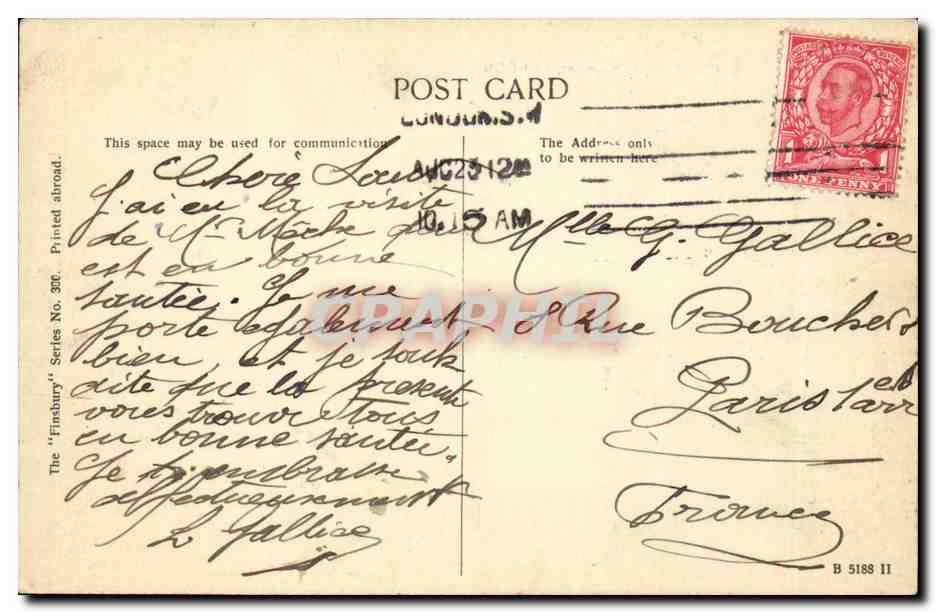 POST CARD
LONDON.S.W
AUG 23 12
10.15 AM
ONE PENNY
This space may be used for communication
The Address only
to be written here
The "Finsbury" Series No. 300. Printed abroad.
Chère
J'ai eu la visite
de Mr
est en bonne
santée. Je me
porte egalement
bien et je
dite que la presente
vous trouve tous
en bonne santée.
Je embrasse
affectueusement
L Gallice
Mlle G. Gallice
8 Rue Boucher
Paris 1er arr
France
CPAPHIL
B 5188 II